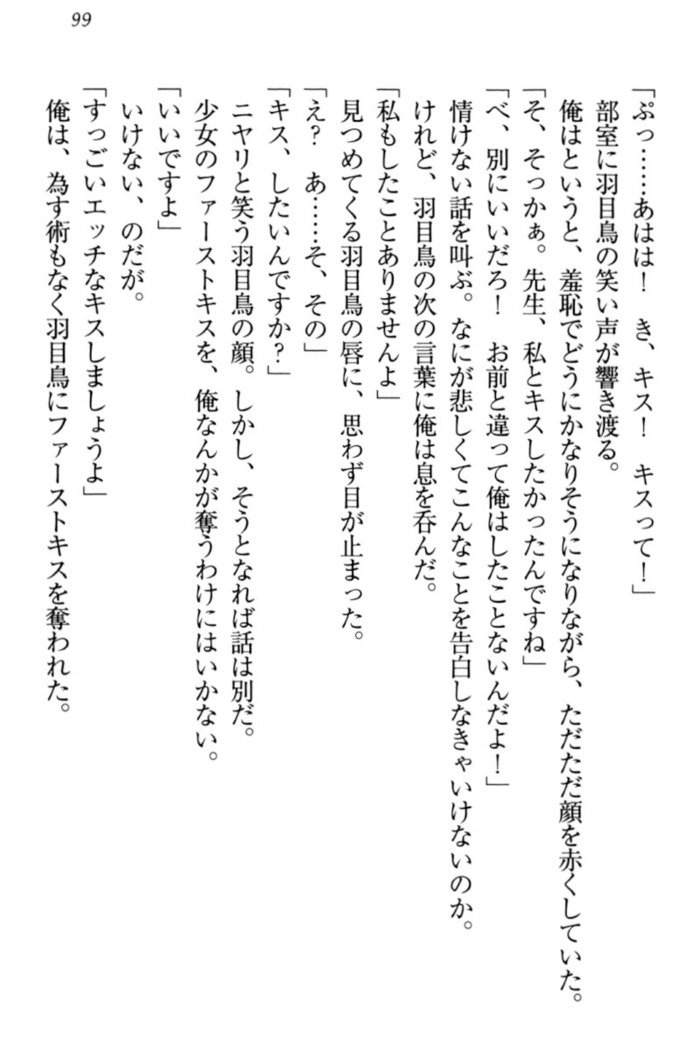 99
「ぷっ……あはは！　き、キス！　キスって！」
部室に羽目鳥の笑い声が響き渡る。
俺はというと、羞恥でどうにかなりそうになりながら、ただただ顔を赤くしていた。
「そ、そっかぁ。先生、私とキスしたかったんですね」
「べ、別にいいだろ！　お前と違って俺はしたことないんだよ！」
情けない話を叫ぶ。なにが悲しくてこんなことを告白しなきゃいけないのか。
けれど、羽目鳥の次の言葉に俺は息を呑んだ。
「私もしたことありませんよ」
見つめてくる羽目鳥の唇に、思わず目が止まった。
「え？　あ……そ、その」
「キス、したいんですか？」
ニヤリと笑う羽目鳥の顔。しかし、そうとなれば話は別だ。
少女のファーストキスを、俺なんかが奪うわけにはいかない。
「いいですよ」
いけない、のだが。
「すっごいエッチなキスしましょうよ」
俺は、為す術もなく羽目鳥にファーストキスを奪われた。